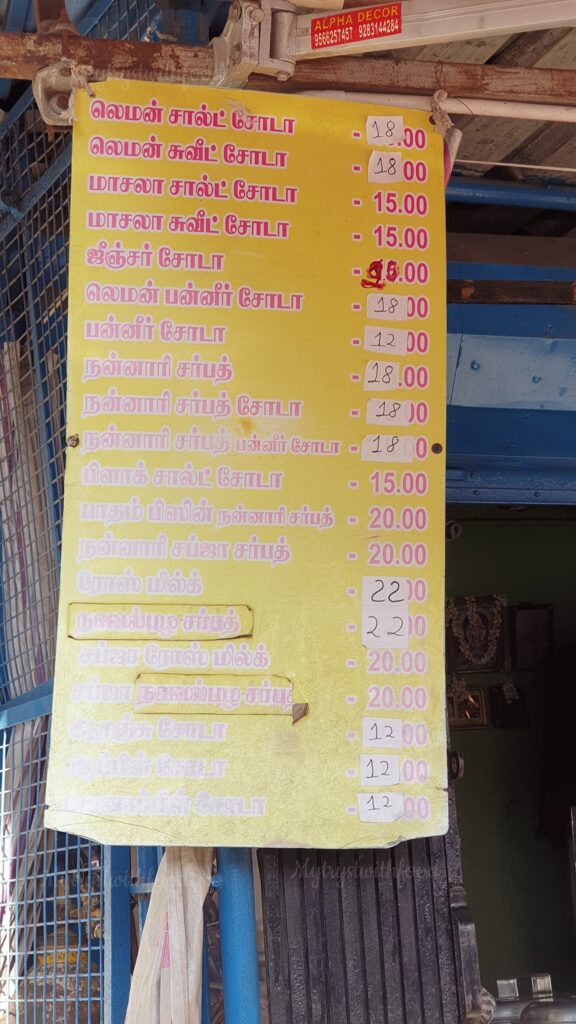 ALPHA DECOR
9566257457 9283144284
லெமன் சால்ட் சோடா - 18.00
லெமன் சுவீட் சோடா - 18 00
மாசலா சால்ட் சோடா - 15.00
மாசலா சுவீட் சோடா - 15.00
ஜீஞ்சர் சோடா - .00
லெமன் பன்னீர் சோடா - 18 00
பன்னீர் சோடா - 12 00
நன்னாரி சர்பத் - 18.00
நன்னாரி சர்பத் சோடா - 18 00
நன்னாரி சர்பத் பன்னீர் சோடா - 18 0
பிளாக் சால்ட் சோடா - 15.00
பாதம் பிஸின் நன்னாரி சர்பத் - 20.00
நன்னாரி சப்ஜா சர்பத் - 20.00
ரோஸ் மில்க் - 22 00
சர்பத் - 22 0
சப்ஜா ரோஸ் மில்க் - 20.00
சப்ஜா - 20.00
ஆரஞ்சு சோடா - 12 00
சோடா - 12 00
சோடா - 12 00
Mytrystwithfood